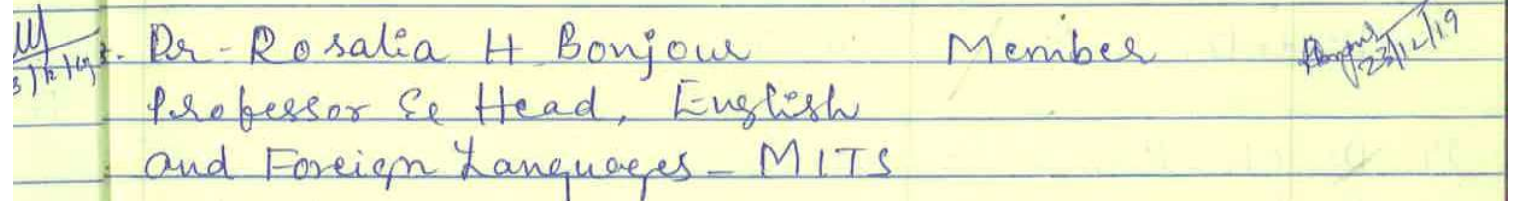 Dr - Rosalia H Bonjour Member 23/12/19
Professor & Head, English
and Foreign Languages - MITS